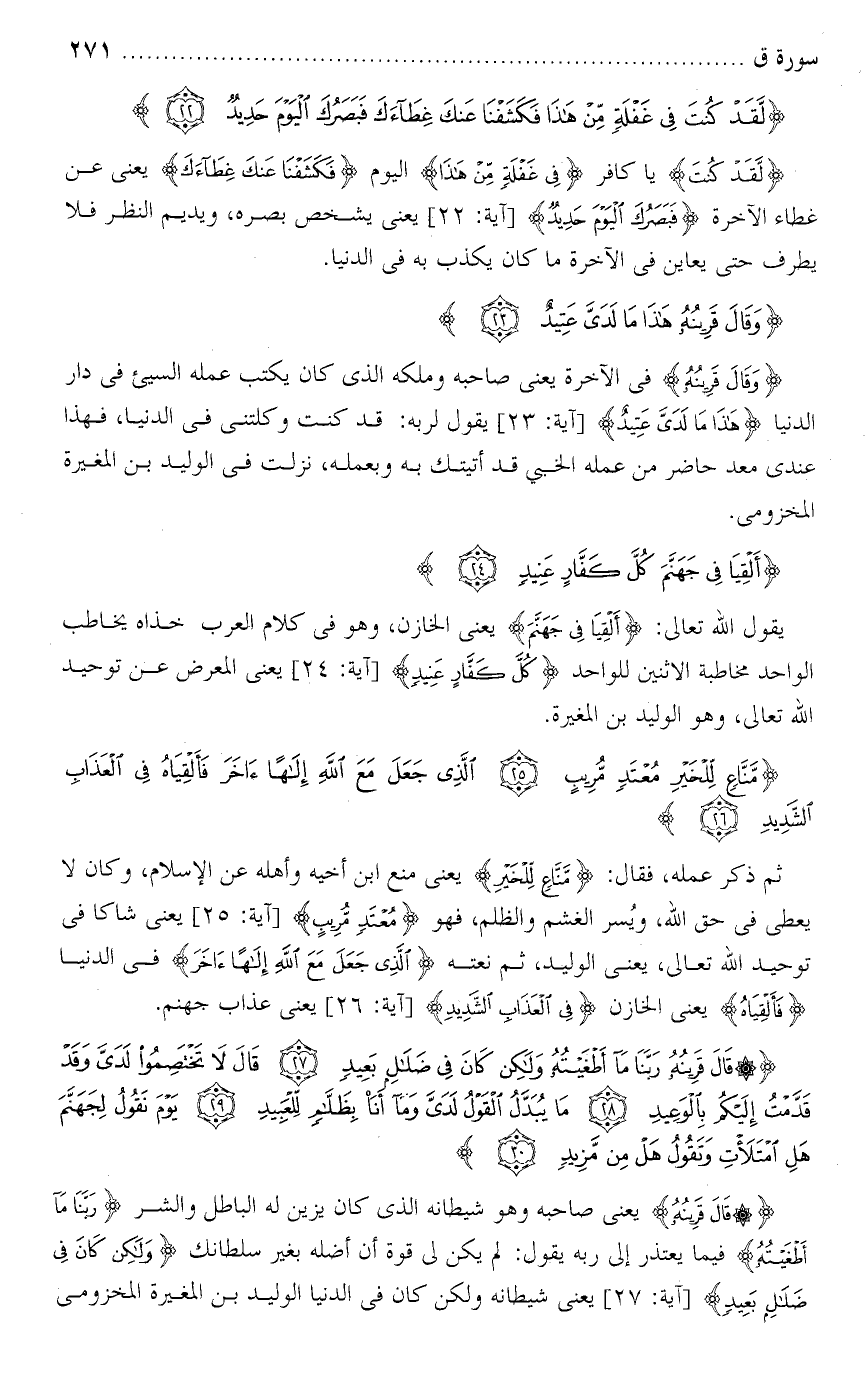 سورة ق ........................................................................ ٢٧١
﴿لَّقَدْ كُنتَ فِى غَفْلَةٍ مِّنْ هَٰذَا فَكَشَفْنَا عَنكَ غِطَآءَكَ فَبَصَرُكَ ٱلْيَوْمَ حَدِيدٌ ٢٢﴾
﴿لَّقَدْ كُنتَ﴾ يا كافر ﴿فِى غَفْلَةٍ مِّنْ هَٰذَا﴾ اليوم ﴿فَكَشَفْنَا عَنكَ غِطَآءَكَ﴾ يعنى عن
غطاء الآخرة ﴿فَبَصَرُكَ ٱلْيَوْمَ حَدِيدٌ﴾ [آية: ٢٢] يعنى يشخص بصره، ويديم النظر فلا
يطرف حتى يعاين فى الآخرة ما كان يكذب به فى الدنيا.
﴿وَقَالَ قَرِينُهُۥ هَٰذَا مَا لَدَىَّ عَتِيدٌ ٢٣﴾
﴿وَقَالَ قَرِينُهُۥ﴾ فى الآخرة يعنى صاحبه وملكه الذى كان يكتب عمله السيئ فى دار
الدنيا ﴿هَٰذَا مَا لَدَىَّ عَتِيدٌ﴾ [آية: ٢٣] يقول لربه: قد كنت وكلتنى فى الدنيا، فهذا
عندى معد حاضر من عمله الخبي قد أتيتك به وبعمله، نزلت فى الوليد بن المغيرة
المخزومى.
﴿أَلْقِيَا فِى جَهَنَّمَ كُلَّ كَفَّارٍ عَنِيدٍ ٢٤﴾
يقول الله تعالى: ﴿أَلْقِيَا فِى جَهَنَّمَ﴾ يعنى الخازن، وهو فى كلام العرب خذاه يخاطب
الواحد مخاطبة الاثنين للواحد ﴿كُلَّ كَفَّارٍ عَنِيدٍ﴾ [آية: ٢٤] يعنى المعرض عن توحيد
الله تعالى، وهو الوليد بن المغيرة.
﴿مَّنَّاعٍ لِّلْخَيْرِ مُعْتَدٍ مُّرِيبٍ ٢٥ ٱلَّذِى جَعَلَ مَعَ ٱللَّهِ إِلَٰهًا ءَاخَرَ فَأَلْقِيَاهُ فِى ٱلْعَذَابِ
ٱلشَّدِيدِ ٢٦﴾
ثم ذكر عمله، فقال: ﴿مَّنَّاعٍ لِّلْخَيْرِ﴾ يعنى منع ابن أخيه وأهله عن الإسلام، وكان لا
يعطى فى حق الله، ويُسر الغشم والظلم، فهو ﴿مُعْتَدٍ مُّرِيبٍ﴾ [آية: ٢٥] يعنى شاكا فى
توحيد الله تعالى، يعنى الوليد، ثم نعته ﴿ٱلَّذِى جَعَلَ مَعَ ٱللَّهِ إِلَٰهًا ءَاخَرَ﴾ فى الدنيا
﴿فَأَلْقِيَاهُ﴾ يعنى الخازن ﴿فِى ٱلْعَذَابِ ٱلشَّدِيدِ﴾ [آية: ٢٦] يعنى عذاب جهنم.
﴿۞قَالَ قَرِينُهُۥ رَبَّنَا مَآ أَطْغَيْتُهُۥ وَلَٰكِن كَانَ فِى ضَلَٰلٍ بَعِيدٍ ٢٧ قَالَ لَا تَخْتَصِمُوا۟ لَدَىَّ وَقَدْ
قَدَّمْتُ إِلَيْكُم بِٱلْوَعِيدِ ٢٨ مَا يُبَدَّلُ ٱلْقَوْلُ لَدَىَّ وَمَآ أَنَا۠ بِظَلَّٰمٍ لِّلْعَبِيدِ ٢٩ يَوْمَ نَقُولُ لِجَهَنَّمَ
هَلِ ٱمْتَلَأْتِ وَتَقُولُ هَلْ مِن مَّزِيدٍ ٣٠﴾
﴿۞قَالَ قَرِينُهُۥ﴾ يعنى صاحبه وهو شيطانه الذى كان يزين له الباطل والشر ﴿رَبَّنَا مَآ
أَطْغَيْتُهُۥ﴾ فيما يعتذر إلى ربه يقول: لم يكن لى قوة أن أضله بغير سلطانك ﴿وَلَٰكِن كَانَ فِى
ضَلَٰلٍ بَعِيدٍ﴾ [آية: ٢٧] يعنى شيطانه ولكن كان فى الدنيا الوليد بن المغيرة المخزومى